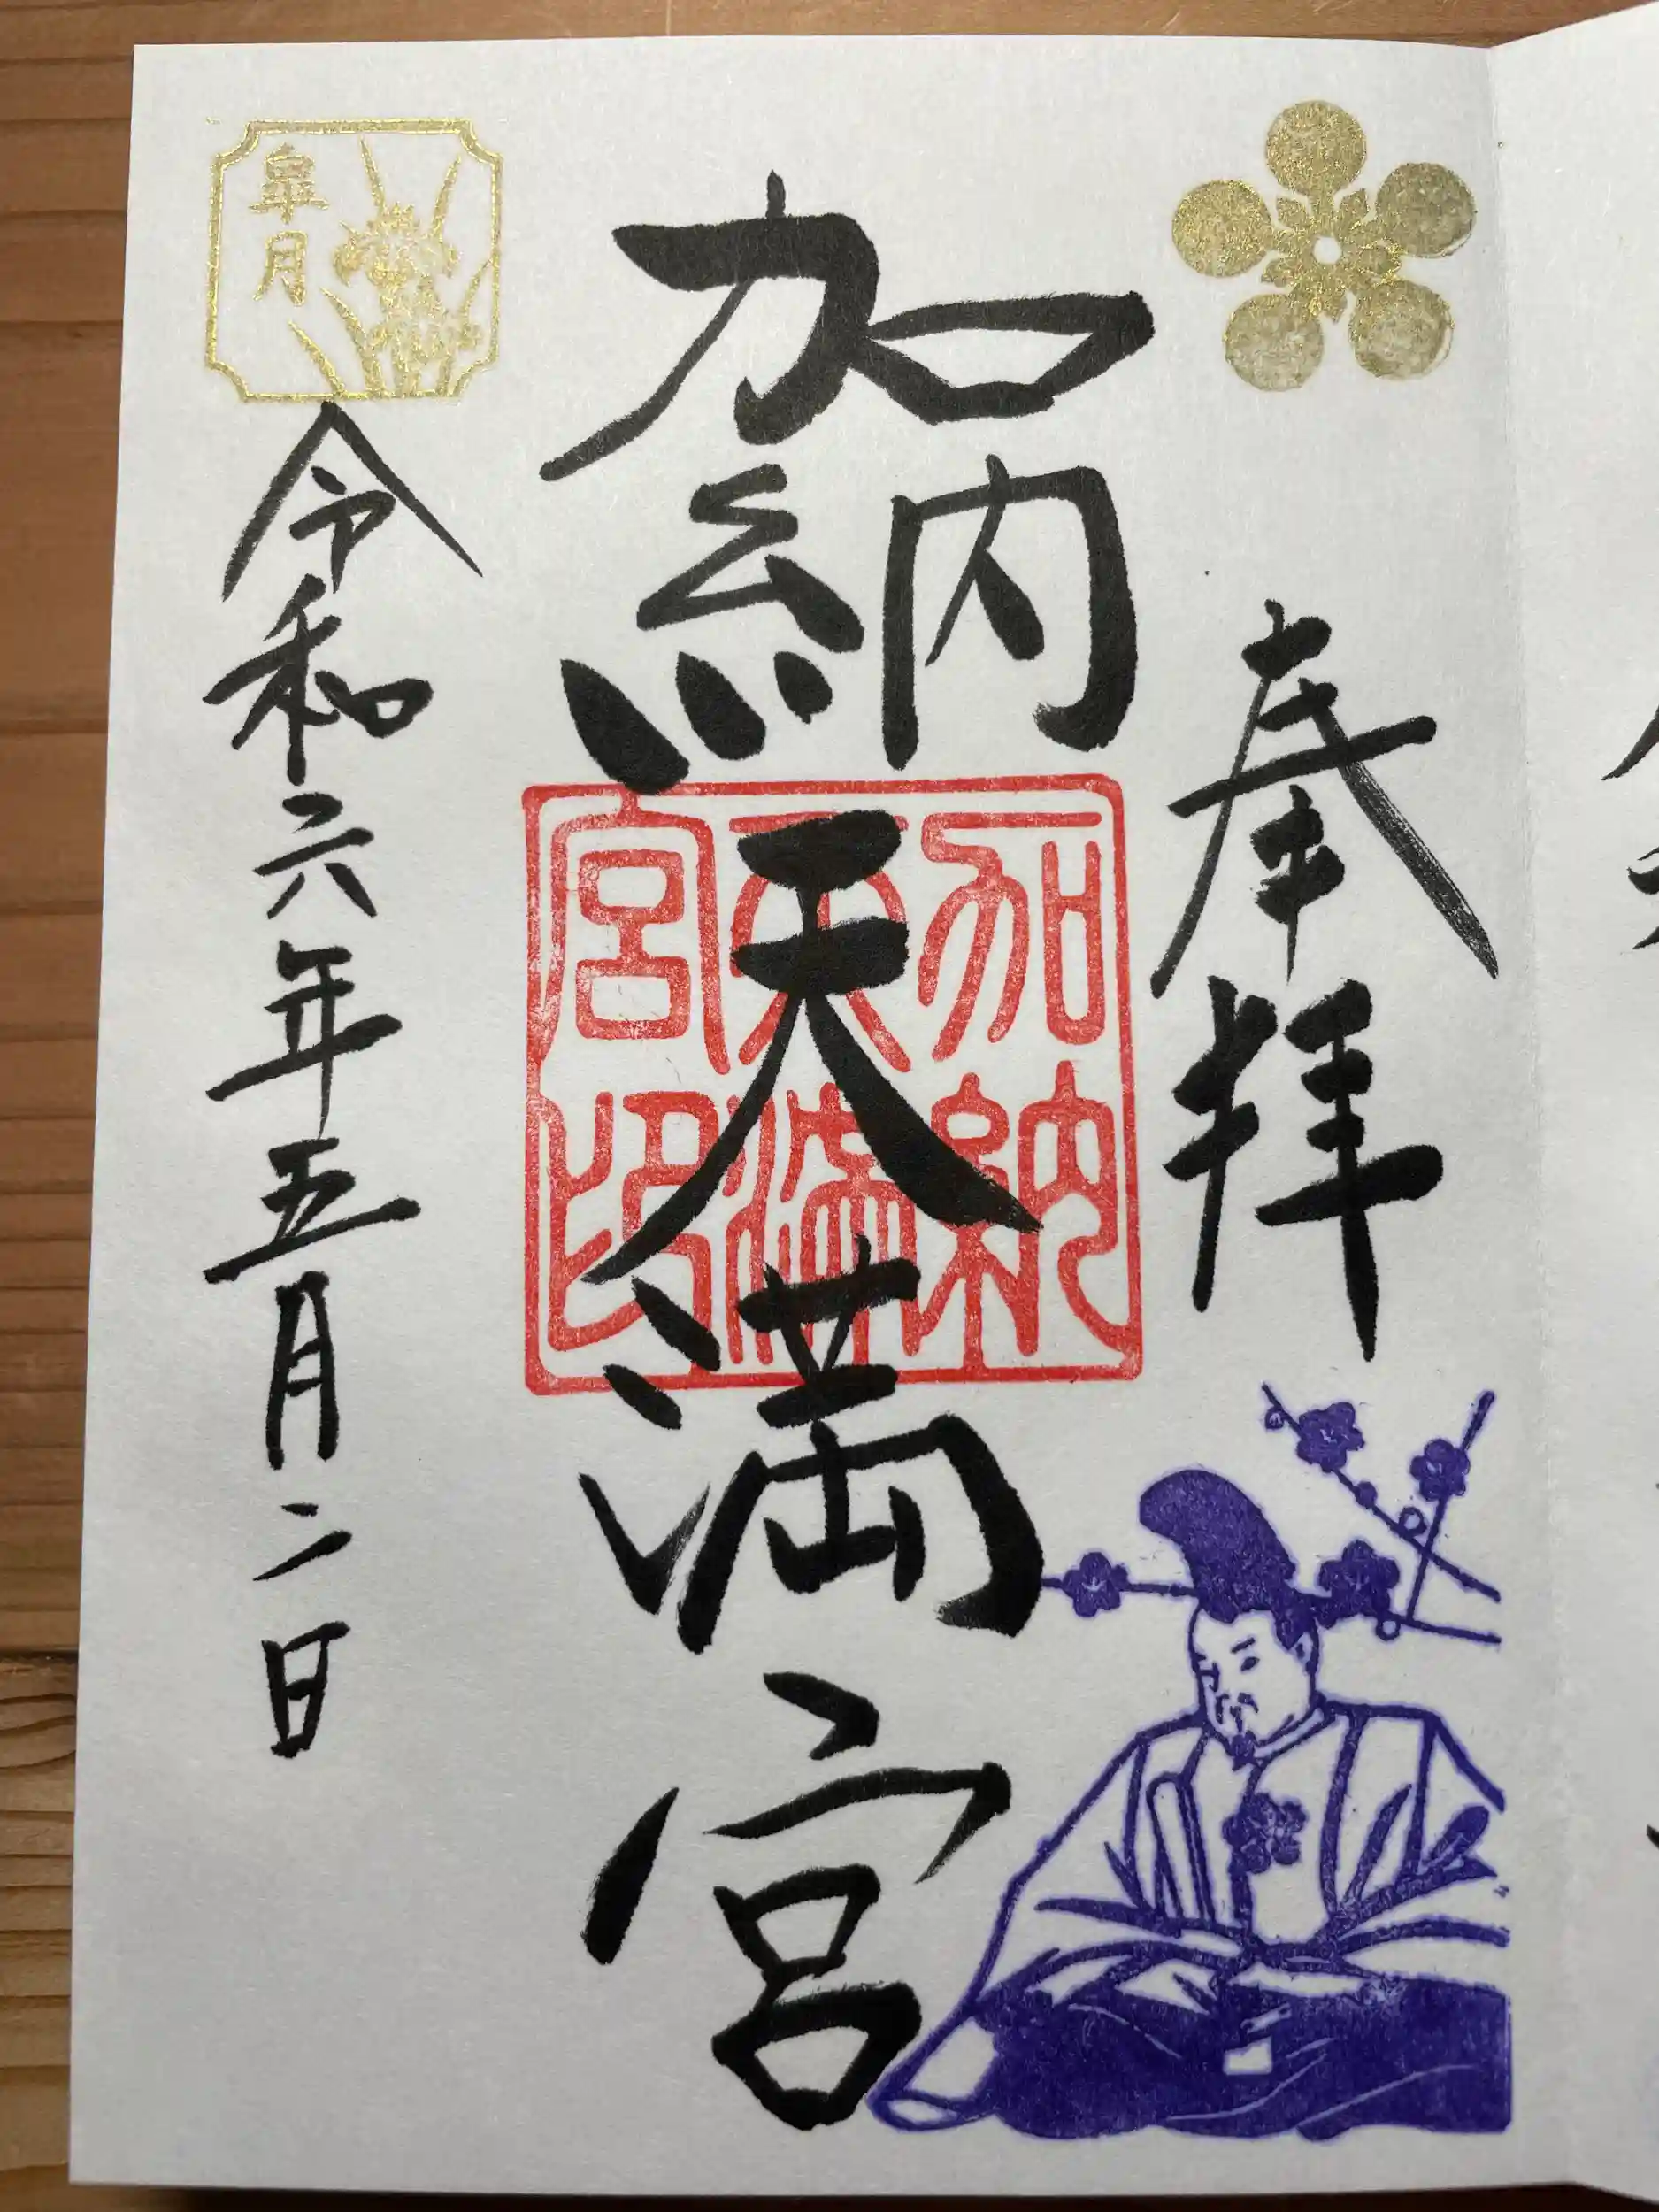 奉拝
加納天満宮
加納天満宮印
皐月
令和六年五月二日